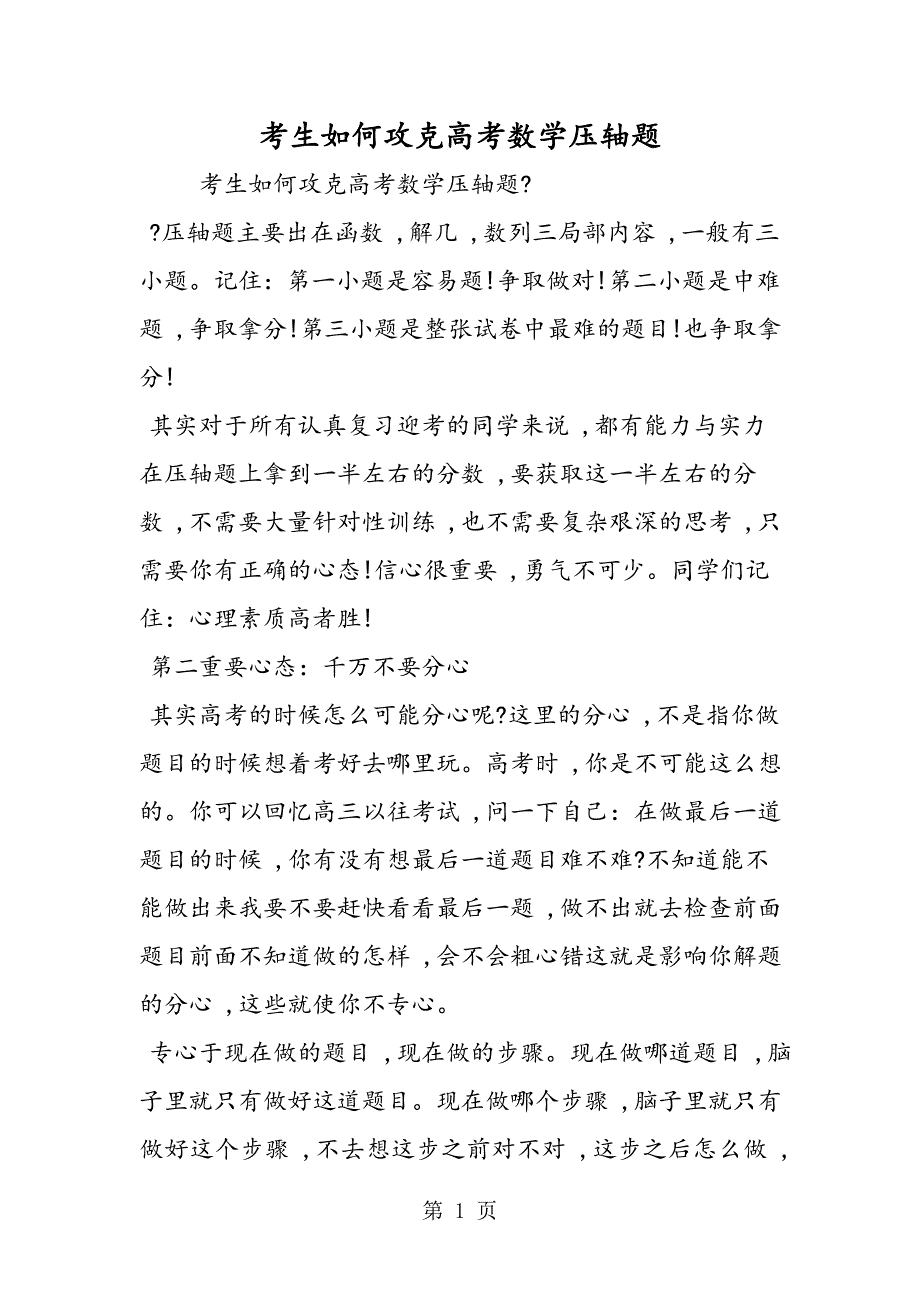 考生如何攻克高考数学压轴题
考生如何攻克高考数学压轴题?
?压轴题主要出在函数 ,解几 ,数列三局部内容 ,一般有三
小题。记住：第一小题是容易题!争取做对!第二小题是中难
题 ,争取拿分!第三小题是整张试卷中最难的题目!也争取拿
分!
其实对于所有认真复习迎考的同学来说 ,都有能力与实力
在压轴题上拿到一半左右的分数 ,要获取这一半左右的分
数 ,不需要大量针对性训练 ,也不需要复杂艰深的思考 ,只
需要你有正确的心态!信心很重要 ,勇气不可少。同学们记
住：心理素质高者胜!
第二重要心态：千万不要分心
其实高考的时候怎么可能分心呢?这里的分心 ,不是指你做
题目的时候想着考好去哪里玩。高考时 ,你是不可能这么想
的。你可以回忆高三以往考试 ,问一下自己：在做最后一道
题目的时候 ,你有没有想最后一道题目难不难?不知道能不
能做出来我要不要赶快看看最后一题 ,做不出就去检查前面
题目前面不知道做的怎样 ,会不会粗心错这就是影响你解题
的分心 ,这些就使你不专心。
专心于现在做的题目 ,现在做的步骤。现在做哪道题目 ,脑
子里就只有做好这道题目。现在做哪个步骤 ,脑子里就只有
做好这个步骤 ,不去想这步之前对不对 ,这步之后怎么做 ,
第 1 页